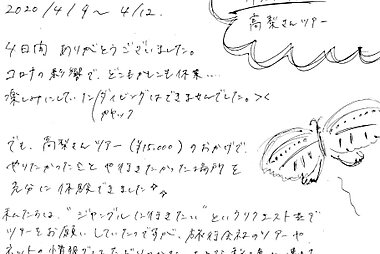 2020/4/9〜4/12.
高梨さんツアー
4日間 ありがとうございました。
コロナの影響で、どこもかしこも休業…
楽しみにしていた ダイビングはできませんでした。><
カヤック
でも、高梨さんツアー(¥15,000)のおかげで、
やりたかったことや行きたかった場所を
充分に体験できました
私たちは、"ジャングルに行きたい"というリクエストまで
ツアーをお願いしていたのですが、旅行会社のツアーや
ネットの情報